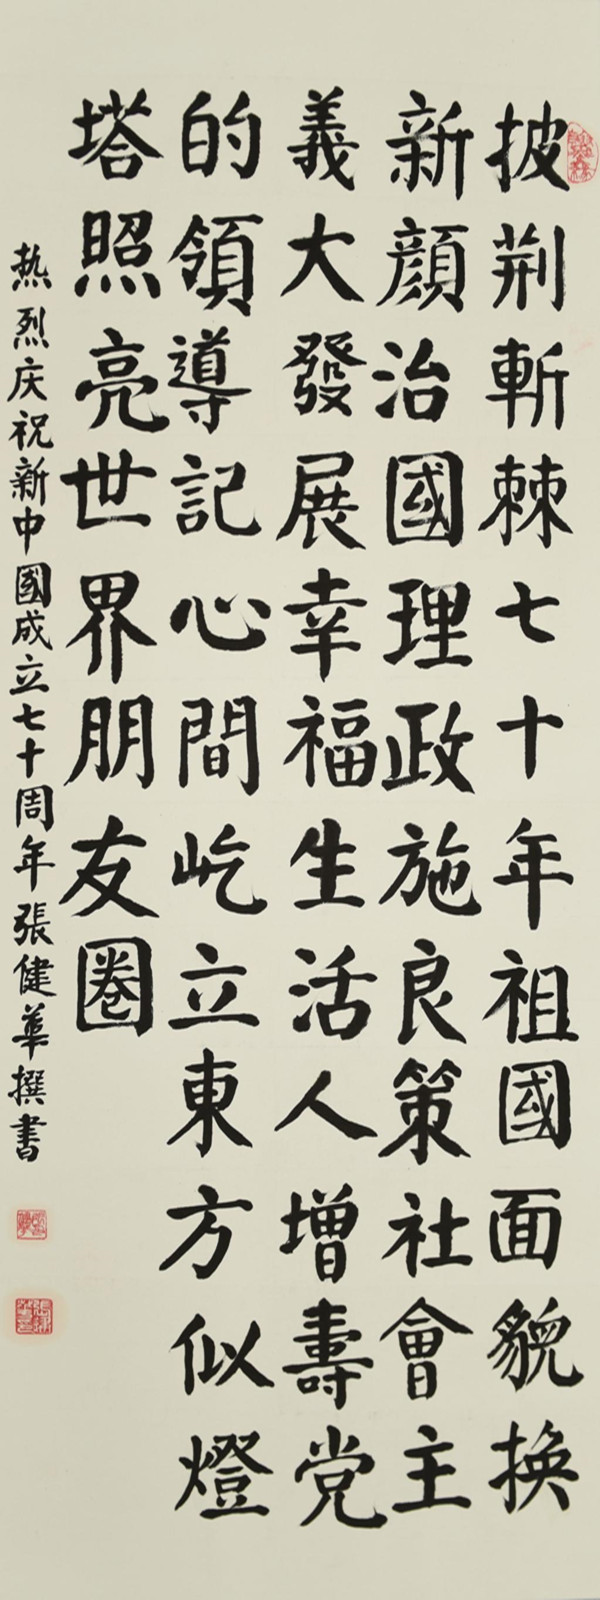 披荆斬棘七十年祖國面貌換
新顔治國理政施良策社會主
義大發展幸福生活人增壽党
的領導記心間屹立東方似燈
塔照亮世界朋友圈
热烈庆祝新中國成立七十周年張健華撰書